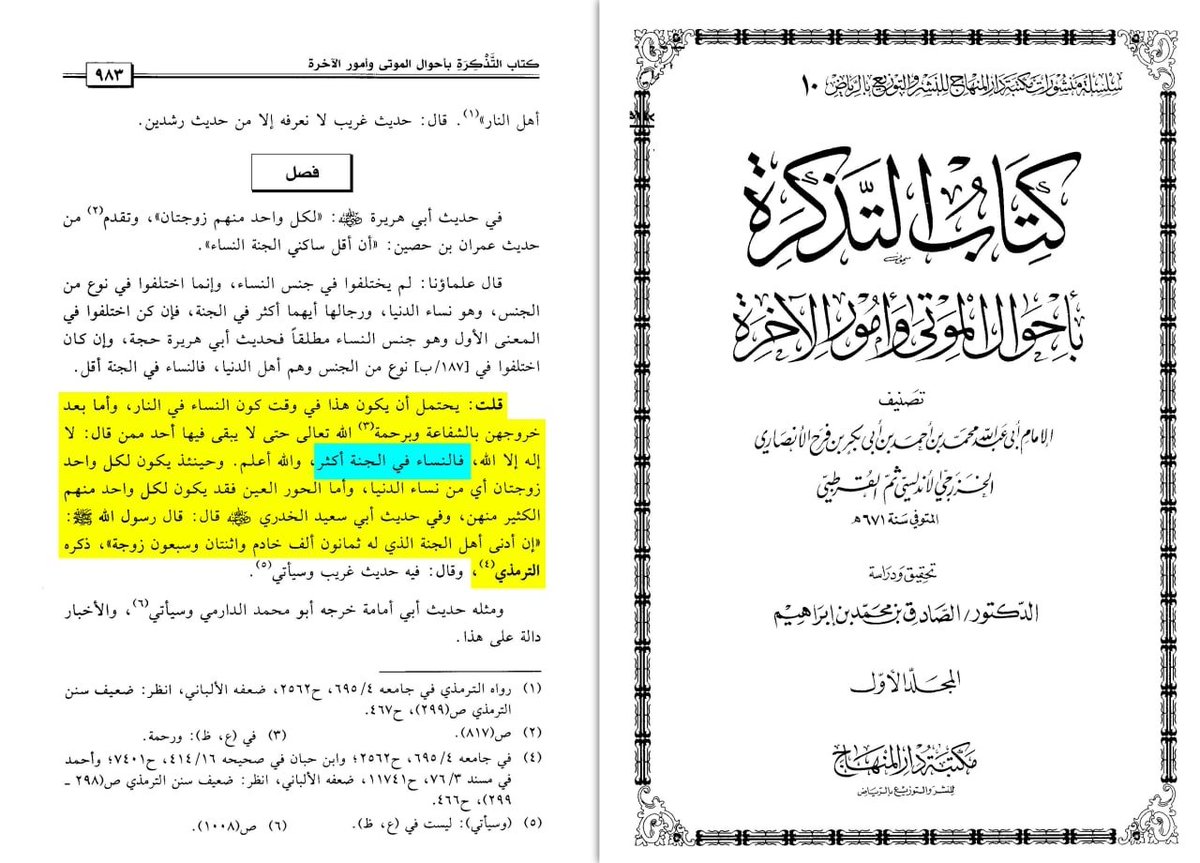 سلسلة منشورات مكتبة دار المنهاج للنشر والتوزيع بالرياض ١٠
كتاب التذكرة
بأحوال الموتى وأمور الآخرة
تصنيف
الإمام أبي عبد الله محمد بن أحمد بن أبي بكر بن فرح الأنصاري
الخزرجي الأندلسي ثم القرطبي
المتوفى سنة ٦٧١هـ
تحقيق ودراسة
الدكتور/ الصادق بن محمد بن إبراهيم
المجلد الأول
مكتبة دار المنهاج
للنشر والتوزيع بالرياض
كتاب التَّذْكِرَةِ بأحوال الموتى وأمور الآخرة
٩٨٣
أهل النار»(١). قال: حديث غريب لا نعرفه إلا من حديث رشدين.
فصل
في حديث أبي هريرة رضي الله عنه: «لكل واحد منهم زوجتان»، وتقدم(٢) من
حديث عمران بن حصين: «أن أقل ساكني الجنة النساء».
قال علماؤنا: لم يختلفوا في جنس النساء، وإنما اختلفوا في نوع من
الجنس، وهو نساء الدنيا، ورجالها أيهما أكثر في الجنة، فإن كن اختلفوا في
المعنى الأول وهو جنس النساء مطلقاً فحديث أبي هريرة حجة، وإن كان
اختلفوا في [١٨٧/ب] نوع من الجنس وهم أهل الدنيا، فالنساء في الجنة أقل.
قلت: يحتمل أن يكون هذا في وقت كون النساء في النار، وأما بعد
خروجهن بالشفاعة وبرحمة(٣) الله تعالى حتى لا يبقى فيها أحد ممن قال: لا
إله إلا الله، فالنساء في الجنة أكثر، والله أعلم. وحينئذ يكون لكل واحد
زوجتان أي من نساء الدنيا، وأما الحور العين فقد يكون لكل واحد منهم
الكثير منهن، وفي حديث أبي سعيد الخدري رضي الله عنه قال: قال رسول الله ﷺ:
«إن أدنى أهل الجنة الذي له ثمانون ألف خادم واثنتان وسبعون زوجة»، ذكره
الترمذي(٤)، وقال: فيه حديث غريب وسيأتي(٥).
ومثله حديث أبي أمامة خرجه أبو محمد الدارمي وسيأتي(٦)، والأخبار
دالة على هذا.
(١) رواه الترمذي في جامعه ٦٩٥/٤، ح٢٥٦٢، ضعفه الألباني، انظر: ضعيف سنن
الترمذي ص(٢٩٩)، ح٤٦٧.
(٢) ص(٨١٧). (٣) في (ع، ظ): ورحمة.
(٤) في جامعه ٦٩٥/٤، ح٢٥٦٢؛ وابن حبان في صحيحه ٤١٤/١٦، ح٧٤٠١؛ وأحمد
في مسند ٧٦/٣، ح١١٧٤١، ضعفه الألباني، انظر: ضعيف سنن الترمذي ص(٢٩٨ ـ
٢٩٩)، ح٤٦٦.
(٥) (وسيأتي): ليست في (ع، ظ). (٦) ص(١٠٠٨).